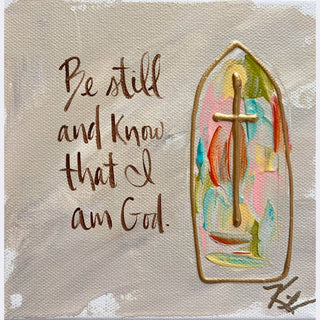 Be still
and Know
that I
am God.